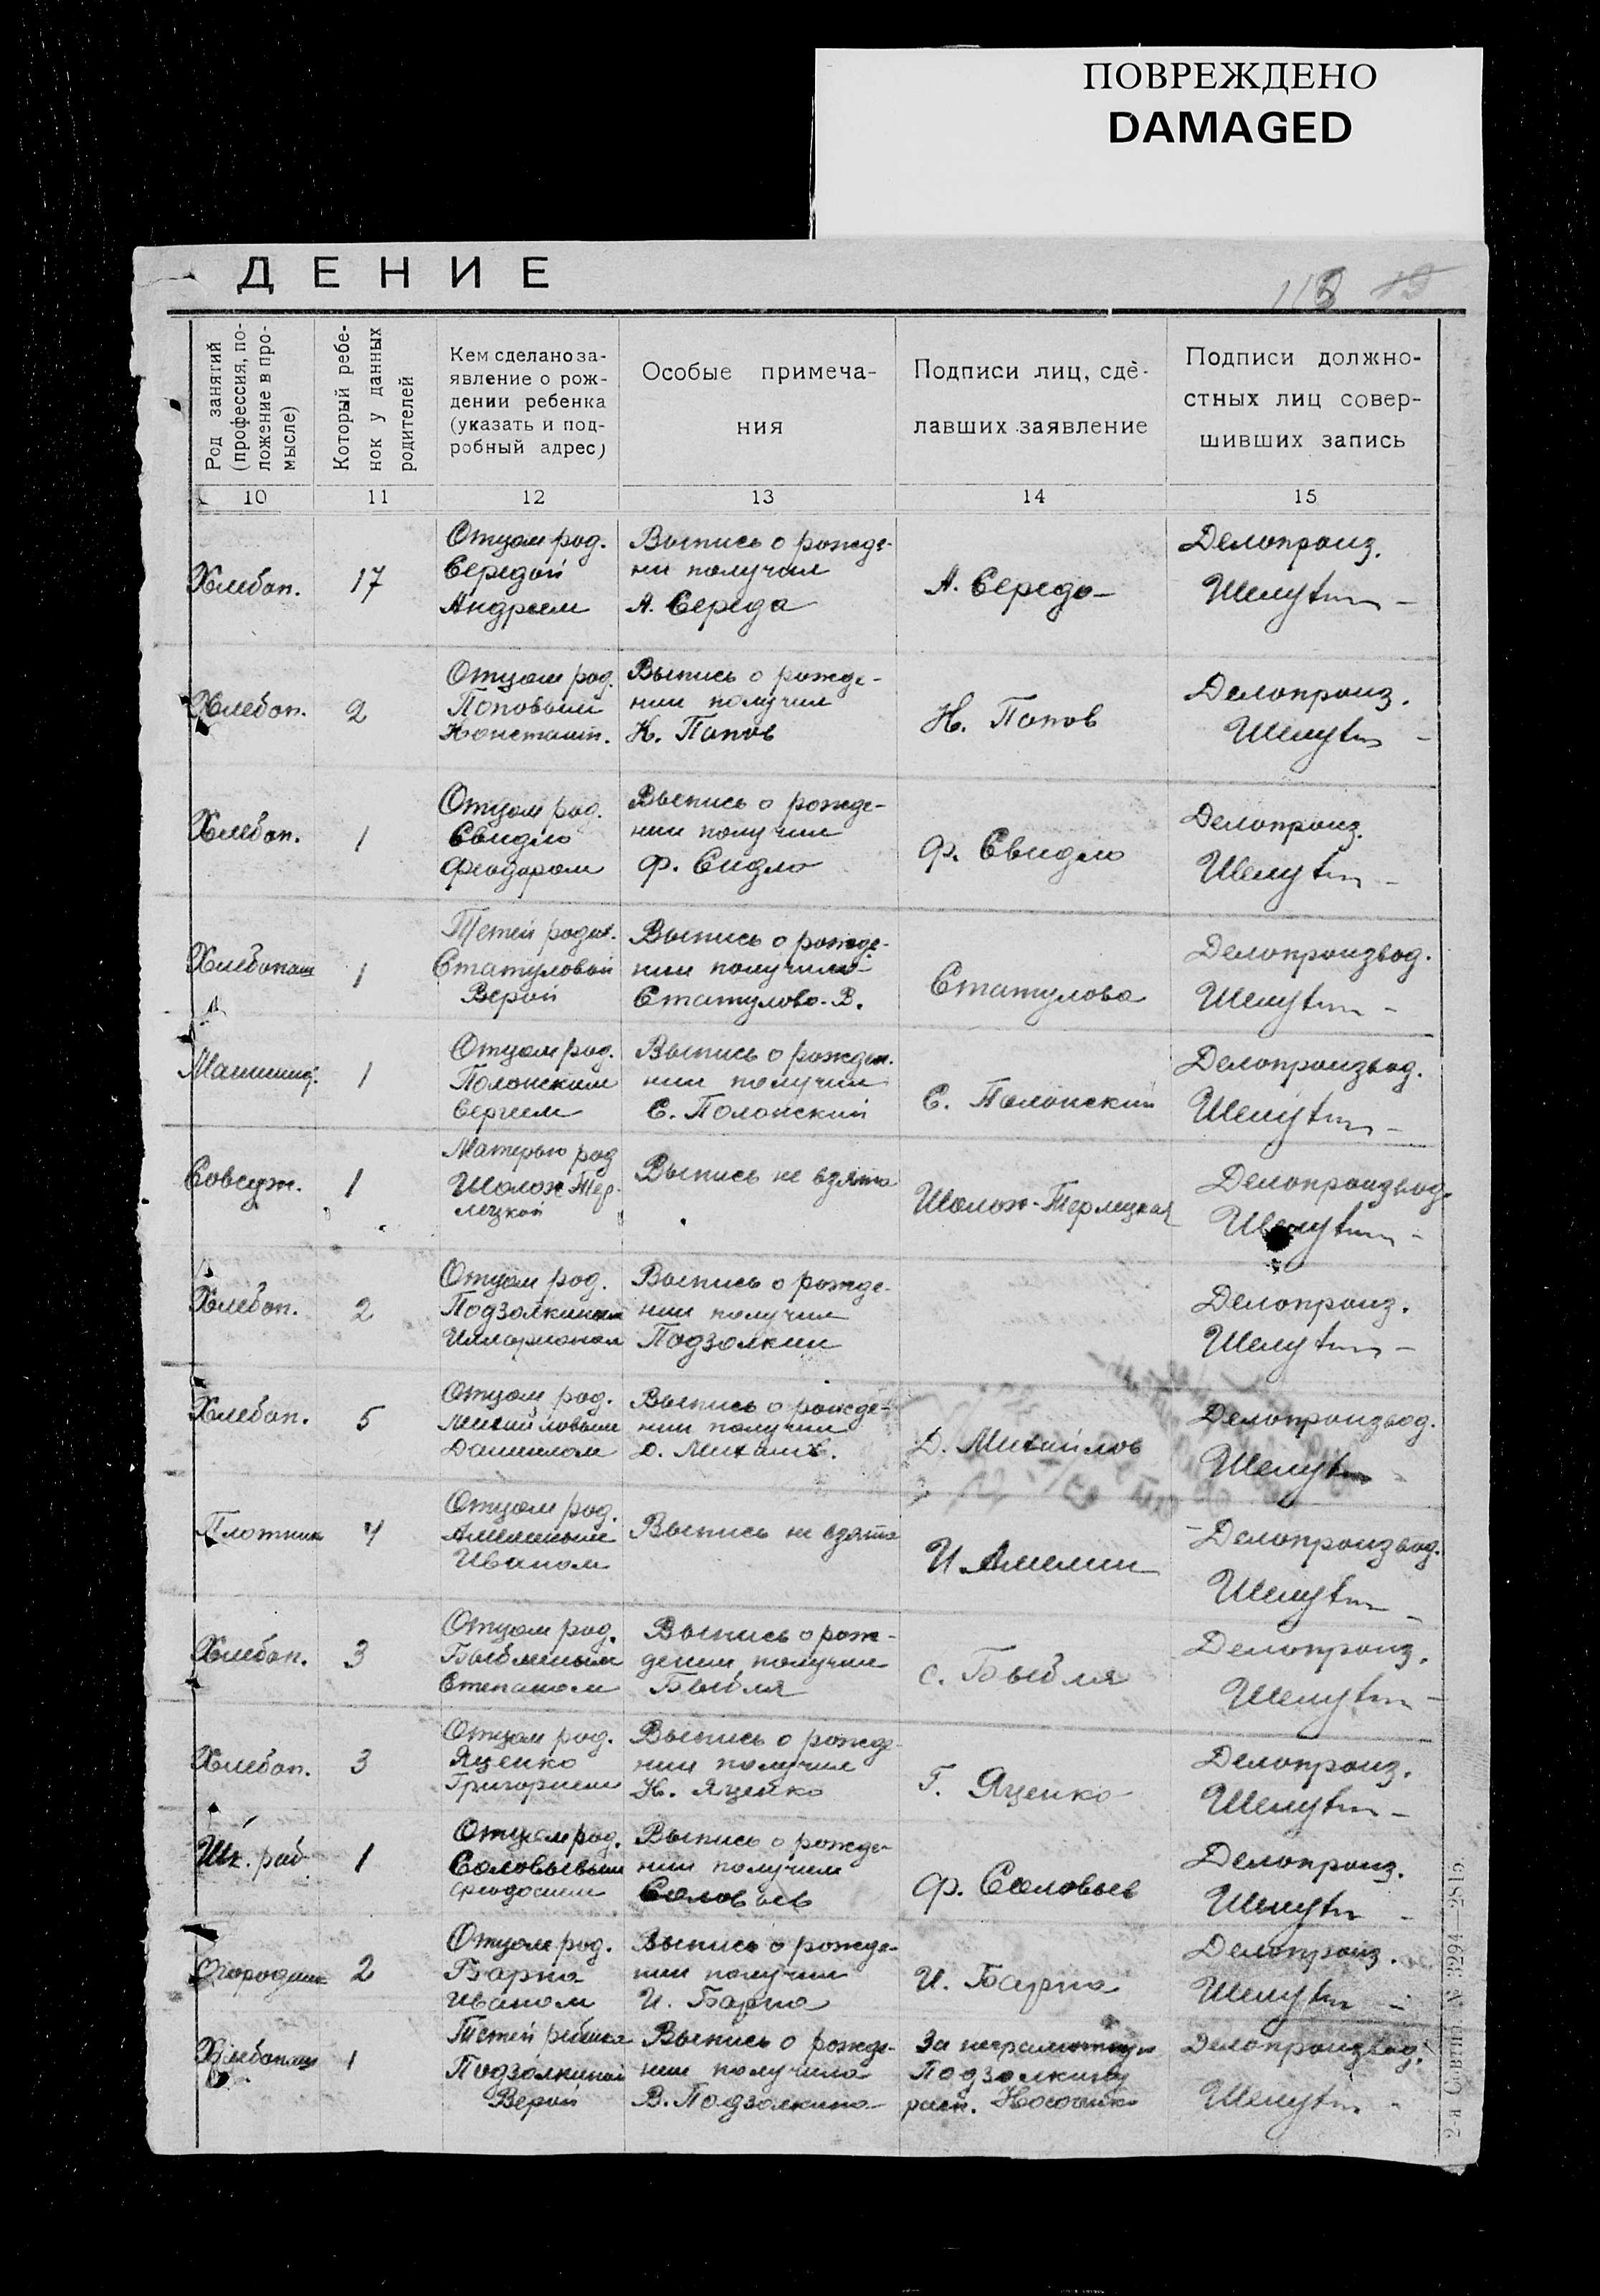 ПОВРЕЖДЕНО
DAMAGED
ДЕНИЕ
118
Род занятий
(профессия, по-
ложение в про-
мысле)
Который ребе-
нок у данных
родителей
Кем сделано за-
явление о рож-
дении ребенка
(указать и под-
робный адрес)
Особые примеча-
ния
Подписи лиц, сде-
лавших заявление
Подписи должно-
стных лиц совер-
шивших запись
10 11 12 13 14 15
Хлебоп.
17
Отцом род.
Середой
Андреем
Выпись о рожде-
нии получил
А. Середа
А. Середа
Делопроиз.
Шелутин
Хлебоп.
2
Отцом род.
Поповым
Констант.
Выпись о рожде-
нии получил
К. Попов
К. Попов
Делопроиз.
Шелутин
Хлебоп.
1
Отцом род.
Свидло
Феодором
Выпись о рожде-
нии получил
Ф. Сидло
Ф. Свидло
Делопроиз.
Шелутин
Хлебопаш
1
Тетей родит.
Статуловой
Верой
Выпись о рожде-
нии получила
Статулова В.
Статулова
Делопроизвод.
Шелутин
Машинист.
1
Отцом род.
Полонским
Сергеем
Выпись о рожден.
нии получил
С. Полонский
С. Полонский
Делопроизвод.
Шелутин
Совслуж.
1
Матерью род
Шолох-Тер-
лецкой
Выпись не взята
Шолох-Терлецкая
Делопроизвод.
Шелутин
Хлебоп.
2
Отцом род.
Подзолкиным
Илларионом
Выпись о рожде-
нии получил
Подзолкин
Делопроиз.
Шелутин
Хлебоп.
5
Отцом род.
Михайловым
Даниилом
Выпись о рожде-
нии получил
Д. Михайл.
Д. Михайлов
Делопроизвод.
Шелутин
Плотник
4
Отцом род.
Амелиным
Иваном
Выпись не взята
И. Амелин
Делопроизвод.
Шелутин
Хлебоп.
3
Отцом род.
Степаном
Выпись о рож-
дении получил
Быбля
С. Быбля
Делопроиз.
Шелутин
Хлебоп.
3
Отцом род.
Яценко
Григорием
Выпись о рожде-
нии получил
Н. Яценко
Г. Яценко
Делопроиз.
Шелутин
Шк. раб
1
Отцом род.
Соловьевым
Феодосием
Выпись о рожде-
нии получил
Соловьев
Ф. Соловьев
Делопроиз.
Шелутин
Огородник
2
Отцом род.
Барна
Иваном
Выпись о рожде-
нии получил
И. Барна
И. Барна
Делопроиз.
Шелутин
Хлебопаш
1
Тетей ребенка
Подзолкиной
Верой
Выпись о рожде-
нии получила
В. Подзолкина
За неграмотную
Подзолкину
расп.
Делопроизвод.
Шелутин